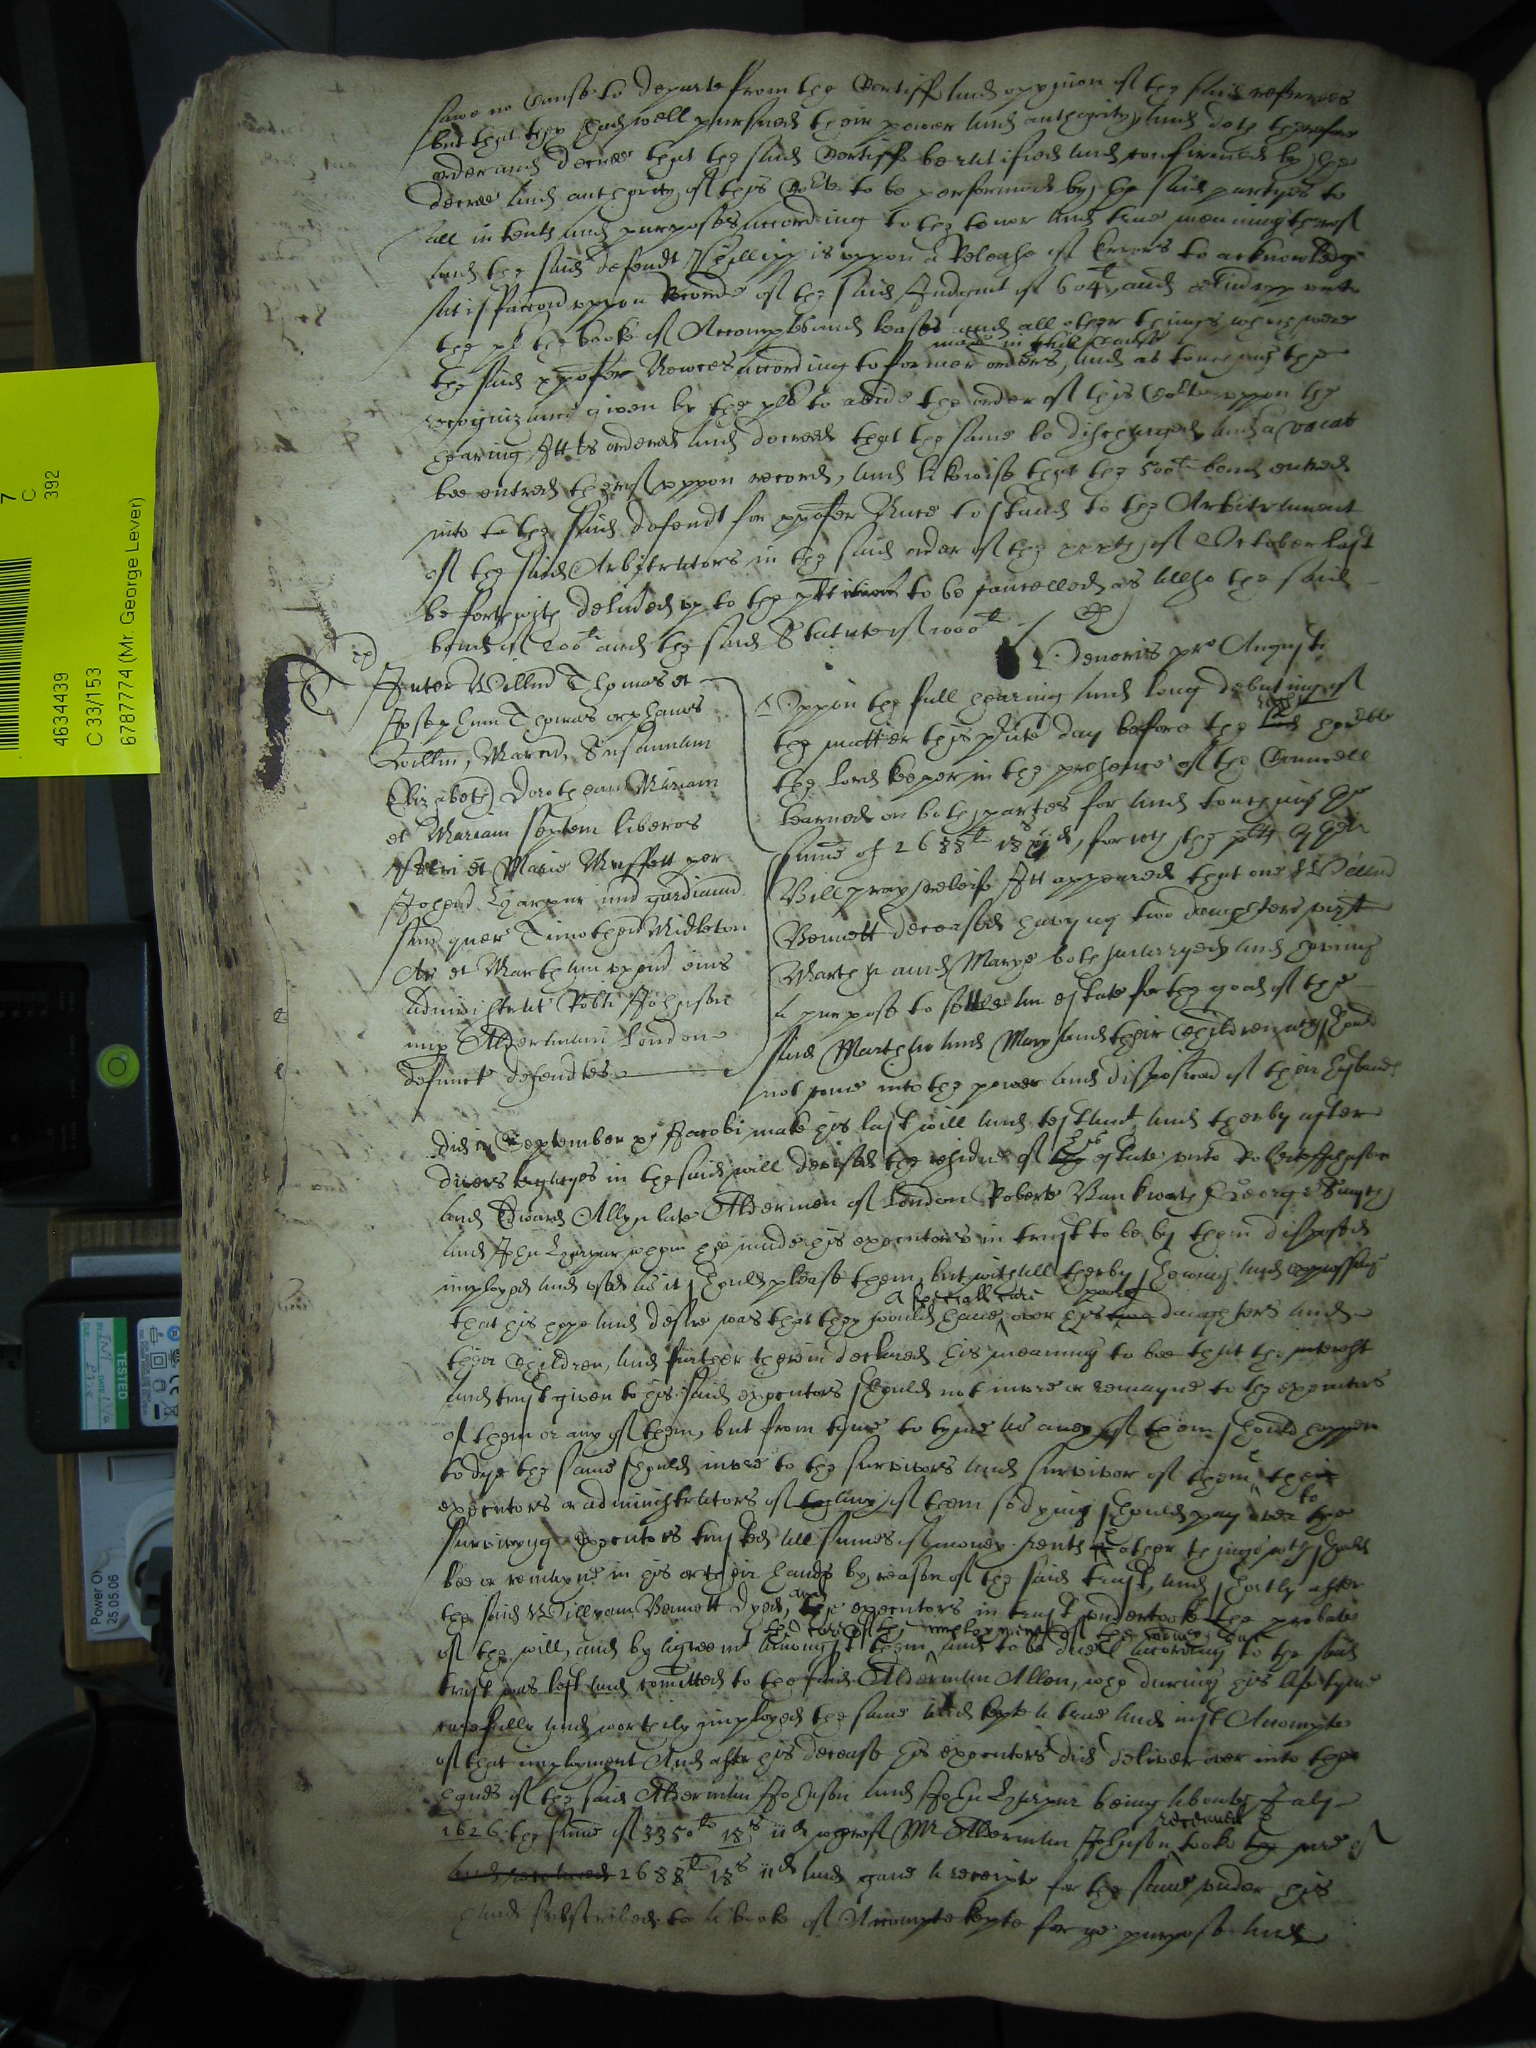 sawe no cause to departe from the Certiff and oppinion of the said referrees
but that they had well pursued their power and authority, and doth therefore
order and decree that the said Certiff be ratified and confirmed by the
decree and authority of this Co:te to be performed by the said partyes to
all intents and purposes according to the tenor and true meaning therof
and the said defendt Phillipps uppon a Release of Errors to acknowledge
satisfaccon uppon Record of the said Judgmt of 604li, and deliver upp unto
the pl the booke of Accompts and leases and all other things which were
made in this cause
the said according to former orders, and as touching the
recognizance given by the plt to abide the order of this Co:te uppon the
hearing Itt is ordered and decreed that the same be discharged and a vacat
bee entred therof uppon record, and likewise that the 500li bond entred
into to the said defendt for to stand to the Arbitrament
of the said Arbitrators in the said order of the of October last
be forthwith delivered up to the plt to be cancelled as allso the said
bond of 200li and the said Statute of 1000li
Veneris pro Augusti
Inter Willm Thomas et
Josephum Thomas orphanos
Willm, Marcu, Susannam
Elizabeth, Dorotheam Miriam
et Mariam septem liberos
et Marie Muffett per
Johem Harper und gardianu
sum quer Timotheu Midleton
Ar et Martham uxorem eius
Administrat Robti Johnson
nup Aldermani London
defunct defendtes
Uppon the full hearing and long debating of
right
the matter this pnte day before the honoble
the Lord keeper, in the presence of the Councell
learned on both partyes for and touching the
summe of 2688li 18s, for wch the plts by their
Bill pray releife Itt appeared that one Willm
Bennett deceased having two daughters vizt
Martha and Marye both marryed and having
a purpose to settle an estate for the good of the
said Martha and Mary and their Children wch should
not come into the power and disposicon of their husbands
did in September Jacobi make his last will and testamt and therby after
divers legacyes in the said will devised the residue of his estate unto Robert Johnson
and Edward Allyn late Aldermen of London Robert Bankworth George Smyth
and John Harper whom hee made his executors in trust to be by them disposed
imployed and used as it should please them, but withall therby shewing and expressing
a speciall care poore
that his hope and desire was that they would have over his daughters and
their Children, and further therein declared his meaning to bee that the interest
and trust given to his said executors should not inure or remayne to the executors
of them or any of them, but from tyme to tyme as any of them should happen
to dye the same should inure to the survivors and survivor of them, their
executors or administrators of any of them so dying should pay over to the
surviving executors trusted all summes of money rents other things wch should
bee or remayne in his or their hands by reason of the said trust, and shortly after
the said Willyam Bennett dyed, and the executors in trust undertooke the probate
the care of the imployment of the money
of the will, and by agreemt amongst them and to be duell according to the said
trust was left and comitted to the said Alderman Allen, who during his life tyme
carefully and worthily imployed the same and kept a true and iust Accompte
of that imployment And after his decease his executors did deliver over into the
hands of the said Alderman Johnson and John Harper being aboute July
received
1626 the summe of 3350li 18s iid wherof Mr Alderman Johnson tooke
2688li 18s iid and gave a receipte for the same under his
hand subscribed to a booke of Accompte kepte for ye purpose and
7
C
392
4634439
C 33/153
6787774 (Mr. George Lever)
TESTED
Power O
25.05.06